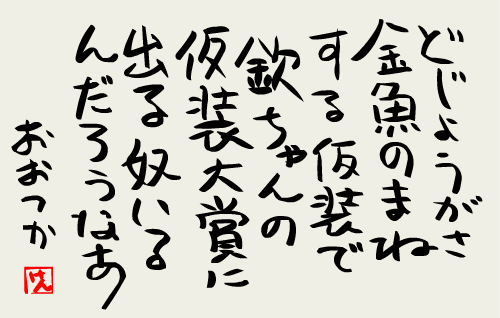 どじょうがさ
金魚のまね
する仮装で
欽ちゃんの
仮装大賞に
出る奴いる
んだろうなあ
おおつか
けん